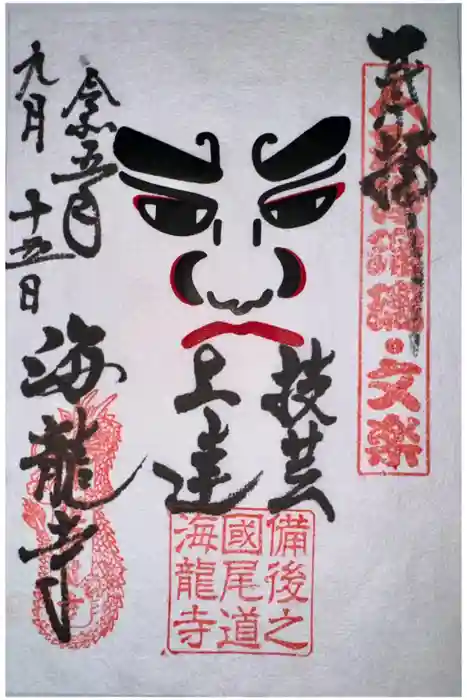 奉拝
人形浄瑠璃・文楽
技芸
上達
備後之
國尾道
海龍寺
令和五年
九月十五日
海龍寺